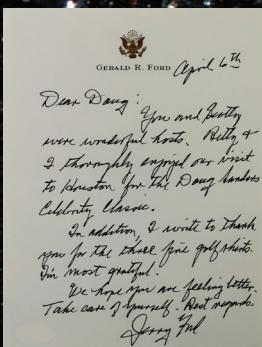 GERALD R. FORD
April 6th
Dear Doug:
You and Scotty
were wonderful hosts. Betty &
I thoroughly enjoyed our visit
to Houston for the Doug Sanders
Celebrity Classic.
In addition, I write to thank
you for the three fine golf shirts.
I'm most grateful.
We hope you are feeling better.
Take care of yourself. Best regards
Jerry Ford